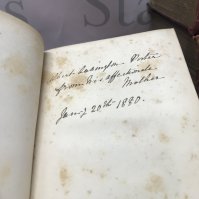 St
Albert Livingston Porter
from his affectionate
Mother
Jany 20th 1880.